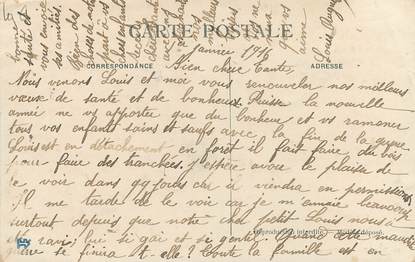 CARTE POSTALE
CORRESPONDANCE
ADRESSE
janvier 1916
Bien chère Tante,
Nous venons Louis et moi vous renouveler nos meilleurs
vœux de santé et de bonheur. Puisse la nouvelle
année ne vs apporter que du bonheur et vs ramener
tous vos enfants sains et saufs avec la fin de la guerre
Louis est en détachement en forêt il fait faire du bois
pour faire des tranchées. J'espère avoir le plaisir de
le voir dans qq jours car il viendra en permission
Il me tarde de le voir car je m'ennuie beaucoup
surtout depuis que notre cher petit Louis nous a
été ravi; lui si gai et si gentil. Quand cette maudite
guerre se finira t-elle? Toute la famille est en
bonne
santé et
vous envoie
ses amitiés.
Louis
Reproduction interdite